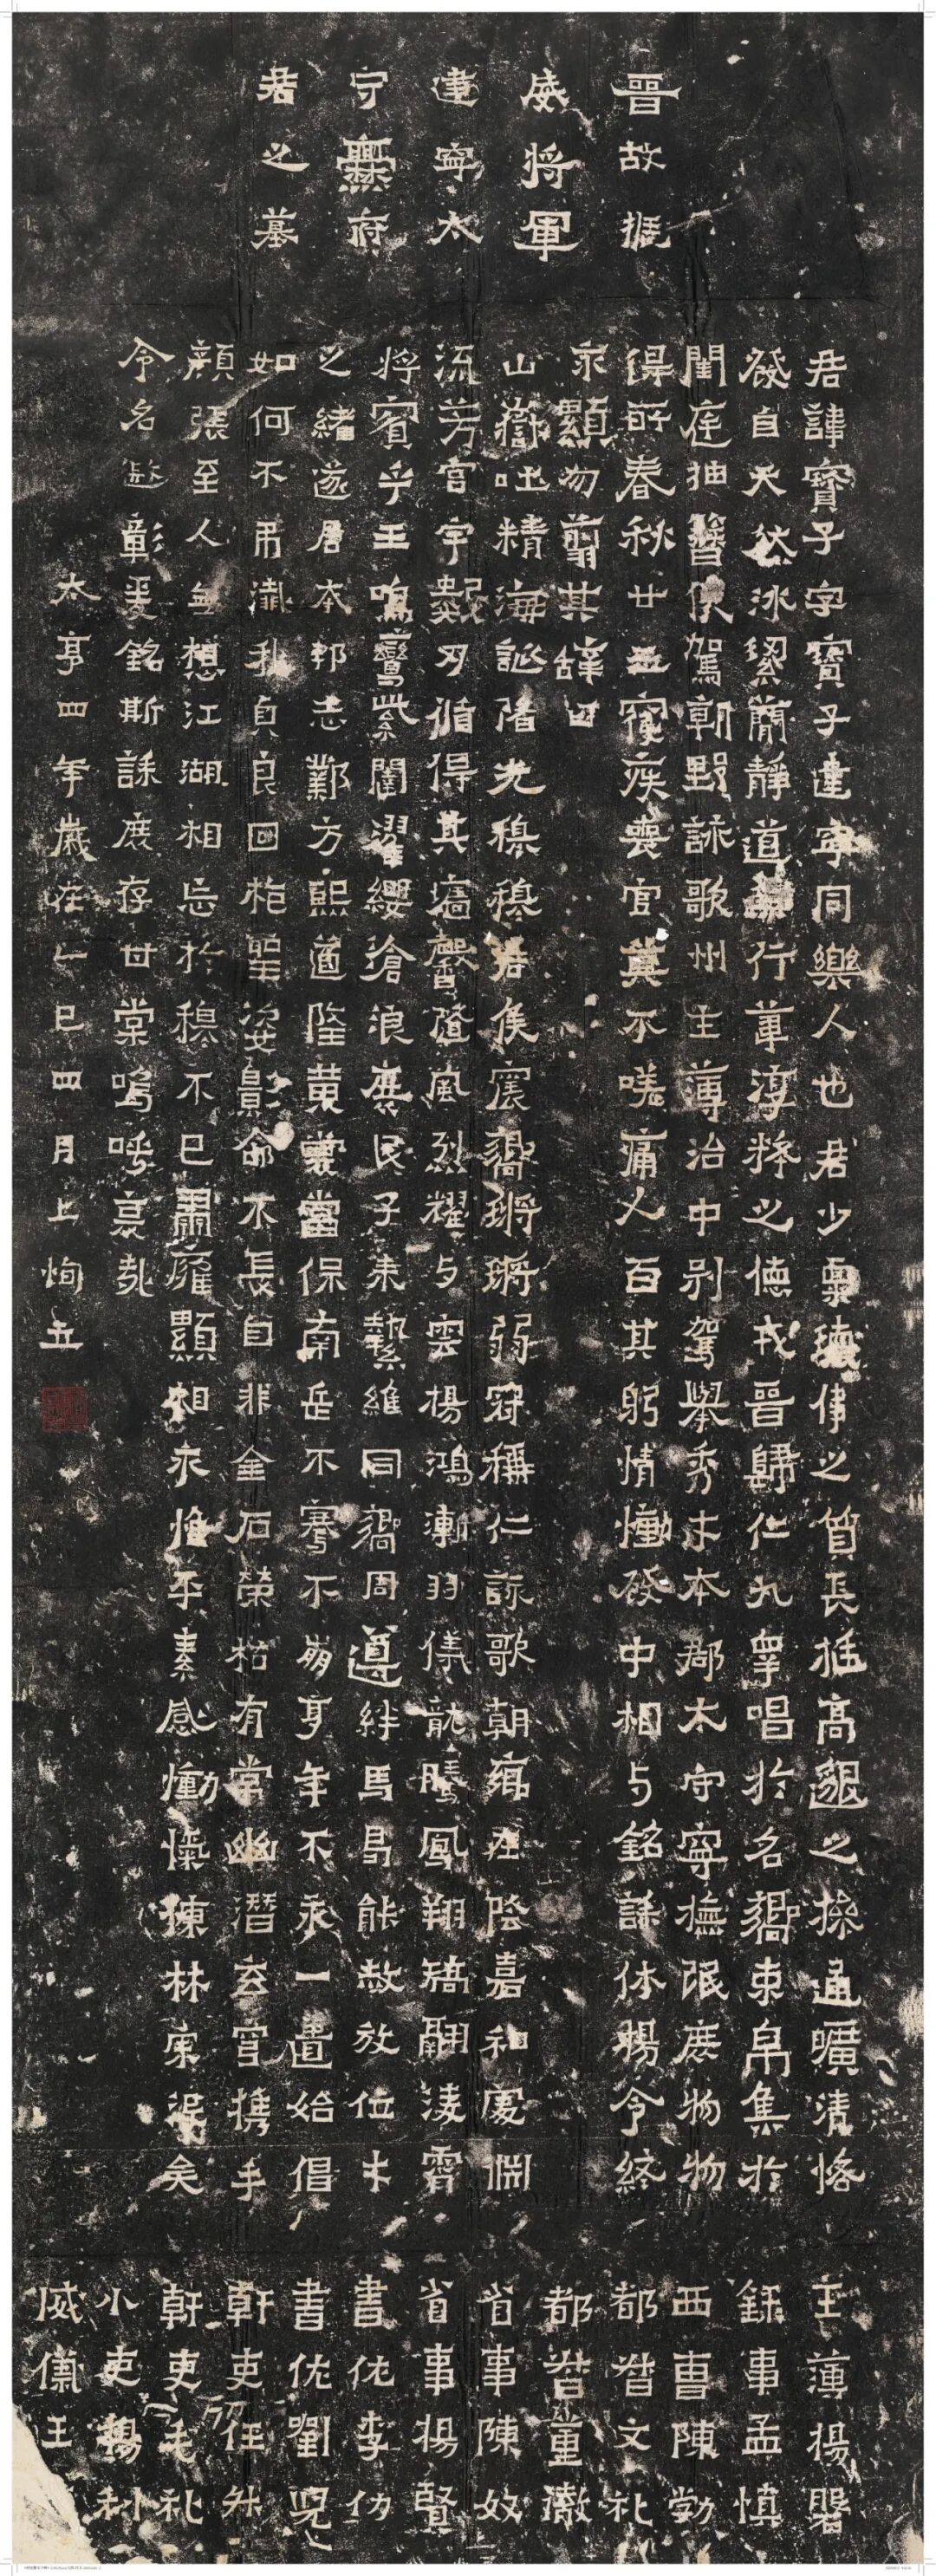 晉故振
威將軍
建寧太
守爨府
君之墓
君諱寶子字寶子建寧同樂人也君少稟瓌偉之質長挺高邈之操通曠清恪
發自天然冰絜簡靜道兼行葦淳粹之德戎晉歸仁九皋唱於名嚮束帛集於
閨庭抽簪俟駕朝野詠歌州主簿治中別駕舉秀才本郡太守寧撫氓庶物物
得所春秋廿五寢疾喪官莫不嗟痛人百其躬情慟發中相与銘誄休揚令終
永顯勿翦其辭曰
山嶽吐精海誕陼光穆穆君侯震嚮鏘鏘弱冠稱仁詠歌朝鄉在陰嘉和處淵
流芳宮宇數仞循得其牆馨隨風烈耀与雲揚鴻漸羽儀龍騰鳳翔矯翮淩霄
將賓乎王鳴鸞紫闥濯纓滄浪庶民子來縶維同嚮周遵絆馬曷能赦放位才
之緒遂居本邦志鄴方熙道隆黃裳當保南岳不騫不崩享年不永一匱始倡
如何不弔殲我貞良回枹聖姿影命不長自非金石榮枯有常幽潛玄穹攜手
顏張至人無想江湖相忘於穆不已肅雍顯相永惟平素感慟愾慷林宗沒矣
令名遐彰爰銘斯誄庶存甘棠嗚呼哀哉
太亨四年歲在乙巳四月上恂立
主簿楊磐
錄事孟慎
西曹陳勃
都督文礼
都督董徹
省事陳奴
省事楊賢
書佐李仂
書佐劉兒
幹吏任升
幹吏毛礼
小吏楊利
威儀王